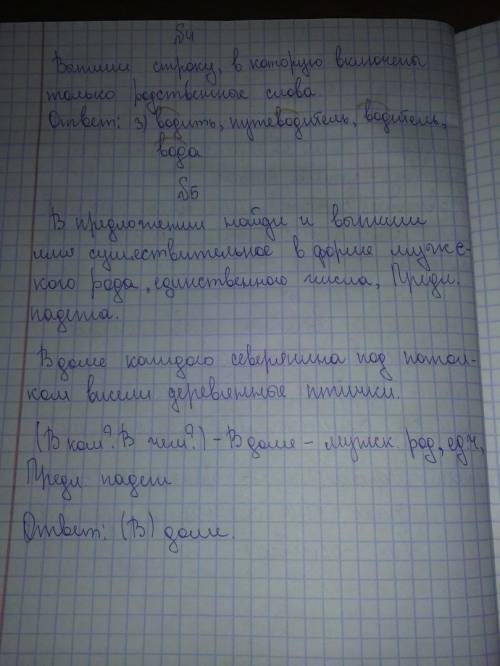 №4
Выпиши строку, в которую включены
только родственные слова.
Ответ: 3) водить, путеводитель, водитель,
вода
№5
В предложении найди и выпиши
имя существительное в форме мужс-
кого рода, единственного числа, Предл.
падежа.
В доме каждого северянина под потол-
ком висели деревянные птички.
(В ком? В чём?) - В доме - мужск. род, ед.ч,
Предл. падеж
Ответ: (В) доме.